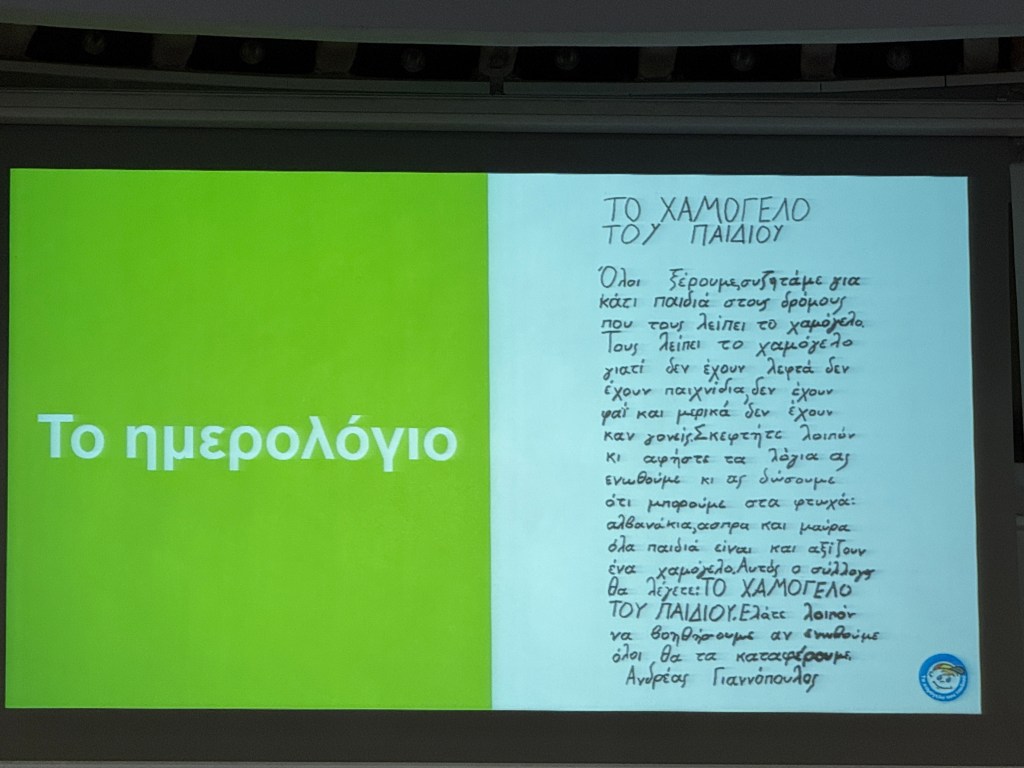 Το ημερολόγιο
ΤΟ ΧΑΜΟΓΕΛΟ
ΤΟΥ ΠΑΙΔΙΟΥ
Όλοι ξέρουμε,συζητάμε για
κάτι παιδιά στους δρόμους
που τους λείπει το χαμόγελο.
Τους λείπει το χαμόγελο
γιατί δεν έχουν λεφτά δεν
έχουν παιχνίδια,δεν έχουν
φαϊ και μερικά δεν έχουν
καν γονείς.Σκεφτήτε λοιπόν
κι αφήστε τα λόγια ας
ενωθούμε κι ας δώσουμε
ότι μπορούμε στα φτωχά:
αλβανάκια,ασπρα και μαύρα
όλα παιδιά είναι και αξίζουν
ένα χαμόγελο.Αυτός ο σύλλογος
θα λέγετε:ΤΟ ΧΑΜΟΓΕΛΟ
ΤΟΥ ΠΑΙΔΙΟΥ.Ελάτε λοιπόν
να βοηθήσουμε αν ενωθούμε
όλοι θα τα καταφέρουμε.
Ανδρέας Γιαννόπουλος